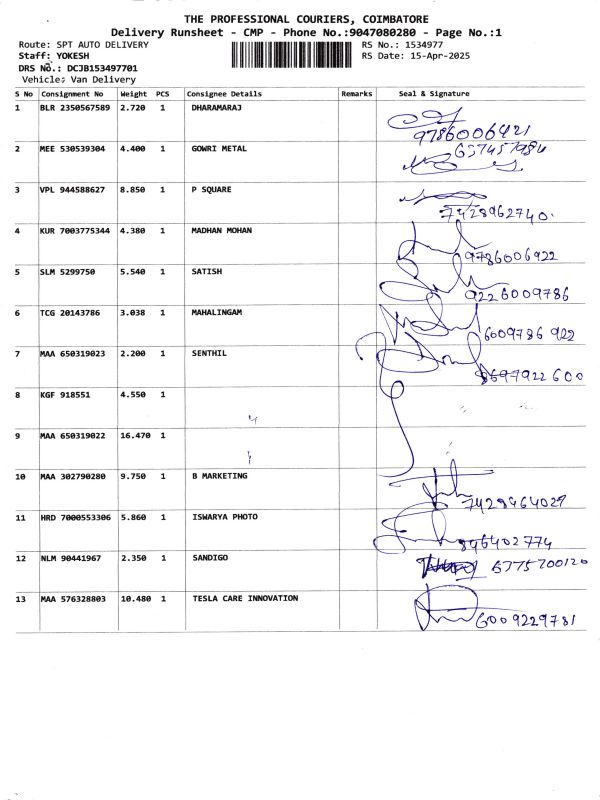 THE PROFESSIONAL COURIERS, COIMBATORE
Delivery Runsheet - CMP - Phone No.:9047080280 - Page No.:1
Route: SPT AUTO DELIVERY
RS No.: 1534977
Staff: YOKESH
RS Date: 15-Apr-2025
DRS No.: DCJB153497701
Vehicle: Van Delivery
S No Consignment No Weight PCS Consignee Details Remarks Seal & Signature
1 BLR 2350567589 2.720 1 DHARAMARAJ
9786006421
2 MEE 530539304 4.400 1 GOWRI METAL
637457984
3 VPL 944588627 8.850 1 P SQUARE
7428962740.
4 KUR 7003775344 4.380 1 MADHAN MOHAN
9786006922
5 SLM 5299750 5.540 1 SATISH
9226009786
6 TCG 20143786 3.038 1 MAHALINGAM
6009786 922
7 MAA 650319023 2.200 1 SENTHIL
8 KGF 918551 4.550 1
9 MAA 650319022 16.470 1
10 MAA 302790280 9.750 1 B MARKETING
7428464029
11 HRD 7000553306 5.860 1 ISWARYA PHOTO
846402774
12 NLM 90441967 2.350 1 SANDIGO 6775700120
13 MAA 576328803 10.480 1 TESLA CARE INNOVATION
6009229781